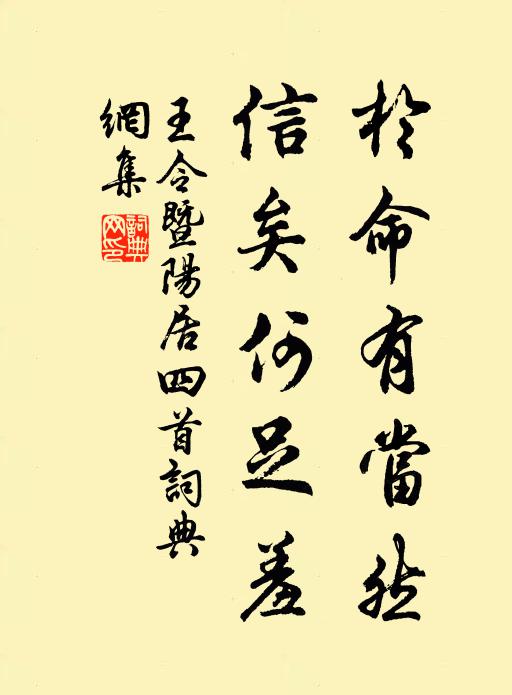 於命有當然
信矣何足羞
王令暨陽居四首詞典
網集
詞典
网印